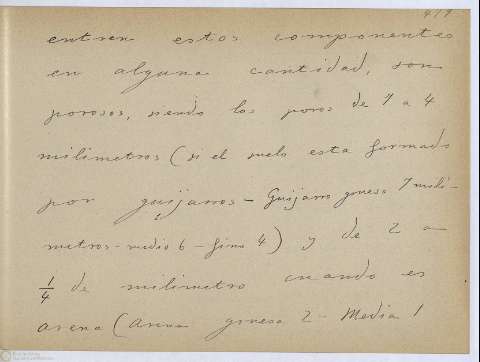 entren estos componentes
en alguna cantidad, son
porosos, siendo los poros de 7 a 4
milimetros (si el suelo esta formado
por guijarros - Guijarro grueso 7 mili-
metros - medio 6 - fino 4) y de 2 a
1/4 de milimetro cuando es
arena (Arena gruesa 2 - Media 1